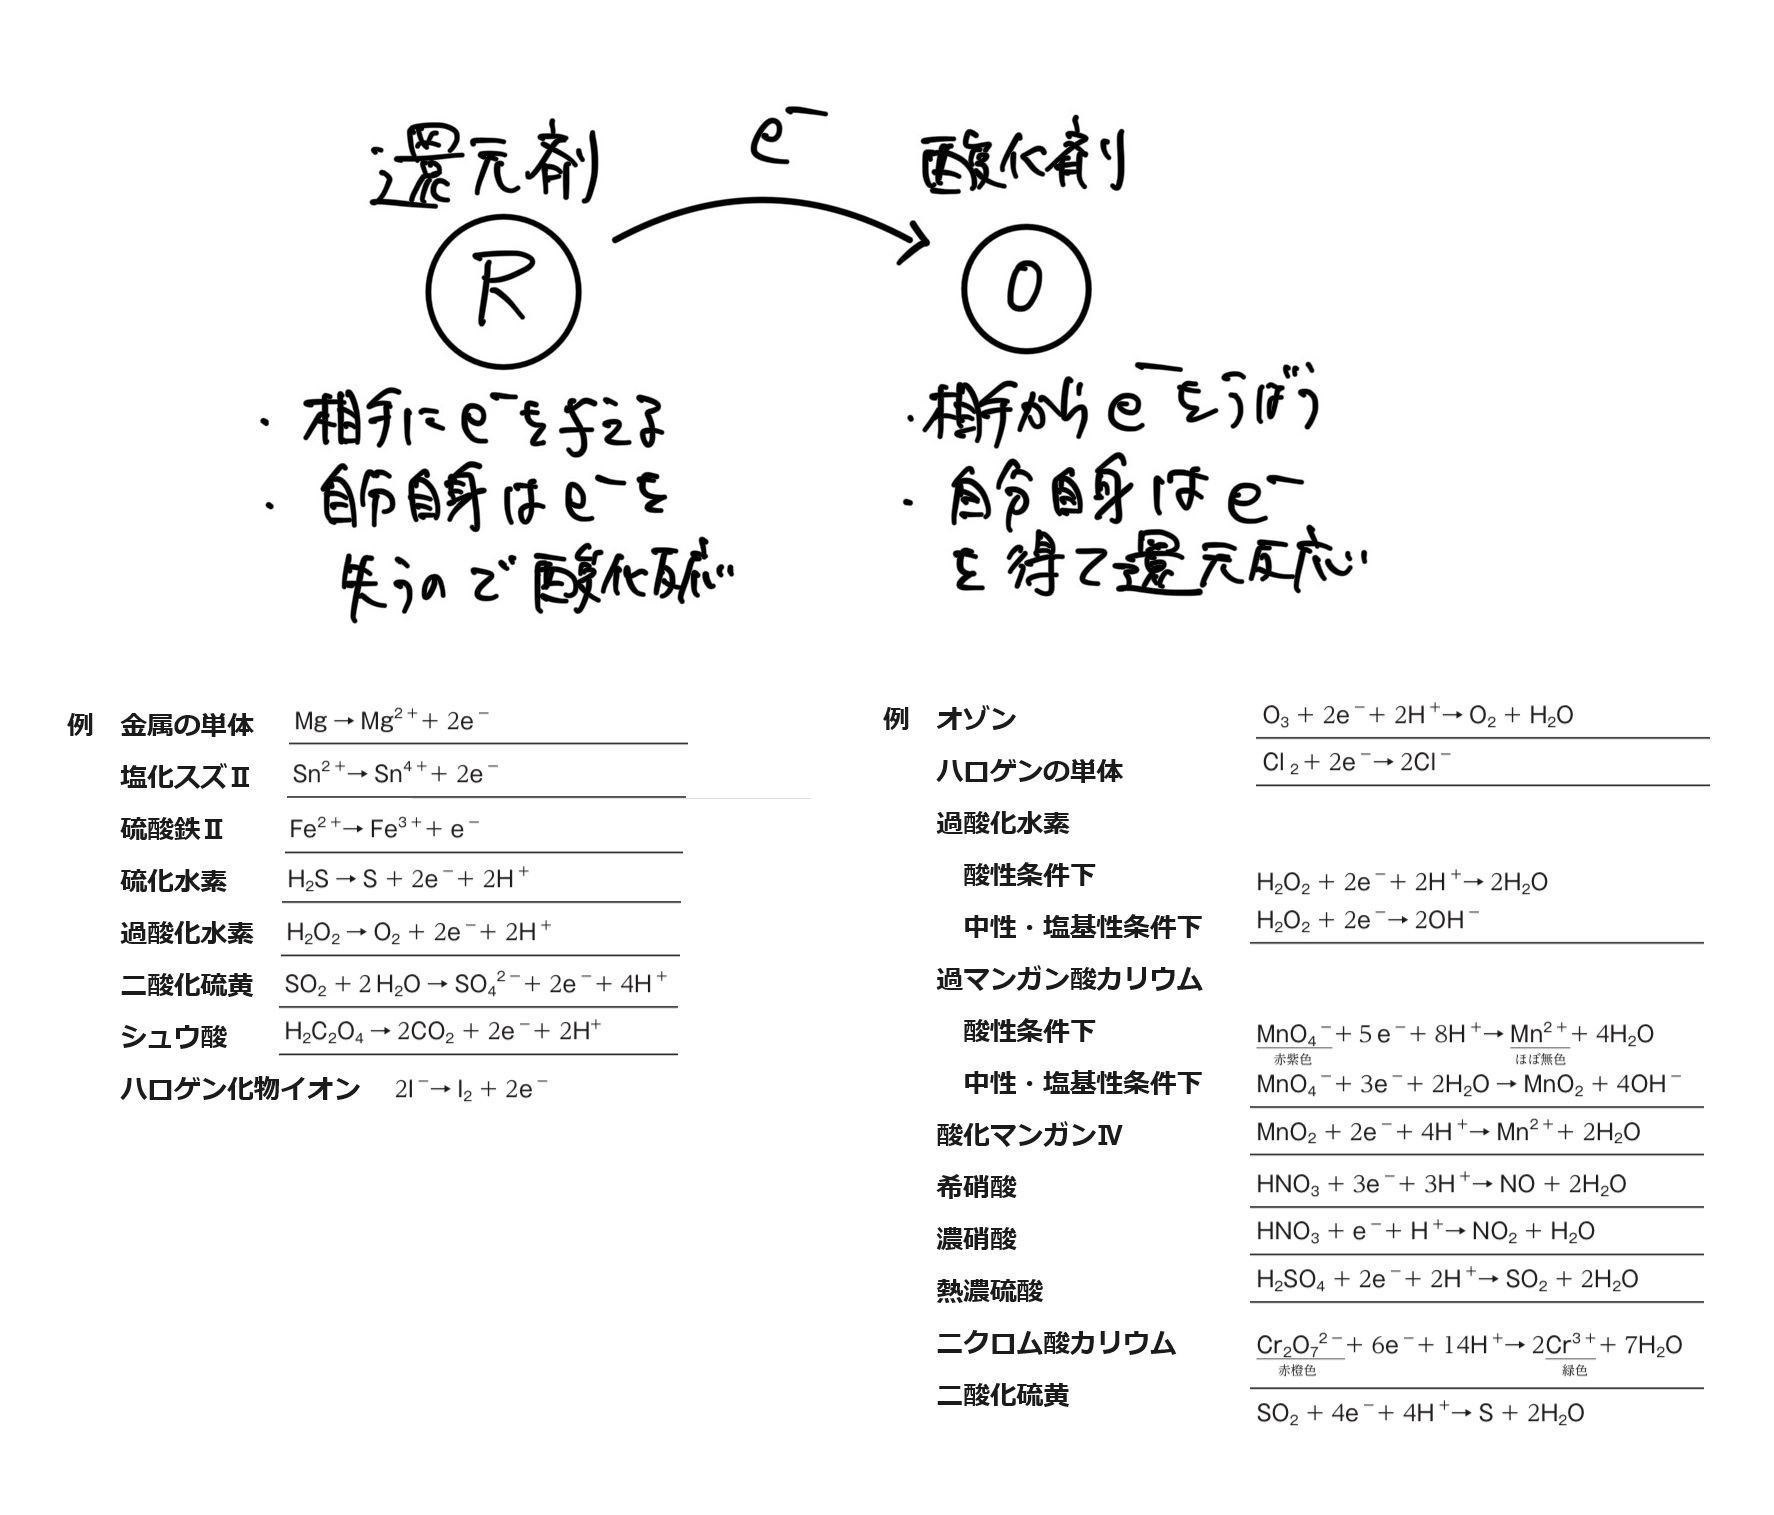 還元剤
e⁻
酸化剤
R
O
・相手にe⁻を与える
・自分自身はe⁻を
失うので酸化反応
・相手からe⁻をうばう
・自分自身はe⁻
を得て還元反応
例 金属の単体 Mg → Mg²⁺ + 2e⁻
塩化スズⅡ Sn²⁺ → Sn⁴⁺ + 2e⁻
硫酸鉄Ⅱ Fe²⁺ → Fe³⁺ + e⁻
硫化水素 H₂S → S + 2e⁻ + 2H⁺
過酸化水素 H₂O₂ → O₂ + 2e⁻ + 2H⁺
二酸化硫黄 SO₂ + 2H₂O → SO₄²⁻ + 2e⁻ + 4H⁺
シュウ酸 H₂C₂O₄ → 2CO₂ + 2e⁻ + 2H⁺
ハロゲン化物イオン 2I⁻ → I₂ + 2e⁻
例 オゾン O₃ + 2e⁻ + 2H⁺ → O₂ + H₂O
ハロゲンの単体 Cl₂ + 2e⁻ → 2Cl⁻
過酸化水素
酸性条件下 H₂O₂ + 2e⁻ + 2H⁺ → 2H₂O
中性・塩基性条件下 H₂O₂ + 2e⁻ → 2OH⁻
過マンガン酸カリウム
酸性条件下 MnO₄⁻ + 5e⁻ + 8H⁺ → Mn²⁺ + 4H₂O
赤紫色 ほぼ無色
中性・塩基性条件下 MnO₄⁻ + 3e⁻ + 2H₂O → MnO₂ + 4OH⁻
酸化マンガンⅣ MnO₂ + 2e⁻ + 4H⁺ → Mn²⁺ + 2H₂O
希硝酸 HNO₃ + 3e⁻ + 3H⁺ → NO + 2H₂O
濃硝酸 HNO₃ + e⁻ + H⁺ → NO₂ + H₂O
熱濃硫酸 H₂SO₄ + 2e⁻ + 2H⁺ → SO₂ + 2H₂O
ニクロム酸カリウム Cr₂O₇²⁻ + 6e⁻ + 14H⁺ → 2Cr³⁺ + 7H₂O
赤橙色 緑色
二酸化硫黄 SO₂ + 4e⁻ + 4H⁺ → S + 2H₂O